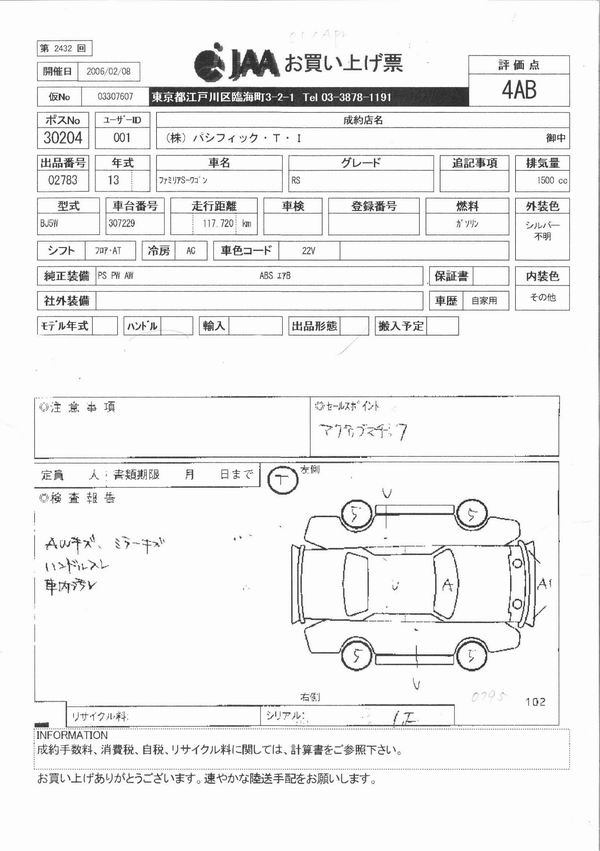 第 2432 回
JAA お買い上げ票
評価点
開催日 2006/02/08
4AB
仮No 03307607
東京都江戸川区臨海町3-2-1 Tel 03-3878-1191
ポスNo ユーザーID 成約店名
30204 001 (株) パシフィック・T・I 御中
出品番号 年式 車名 グレード 追記事項 排気量
02783 13 ファミリアS-ワゴン RS 1500 cc
型式 車台番号 走行距離 車検 登録番号 燃料 外装色
BJ5W 307229 117,720 km ガソリン シルバー
不明
シフト フロア・AT 冷房 AC 車色コード 22V
純正装備 PS PW AW ABS エアB 保証書 内装色
社外装備 車歴 自家用 その他
モデル年式 ハンドル 輸入 出品形態 搬入予定
◎注意事項 ◎セールスポイント
アクティブマチック
定員 人 書類期限 月 日まで T 左側
◎検査報告
AWキズ、ミラーキズ
ハンドルスレ
車内汚レ
U
5 5
U A A1
5 5
U
右側
0795
102
リサイクル料: シリアル:
INFORMATION
成約手数料、消費税、自税、リサイクル料に関しては、計算書をご参照下さい。
お買い上げありがとうございます。速やかな陸送手配をお願いします。